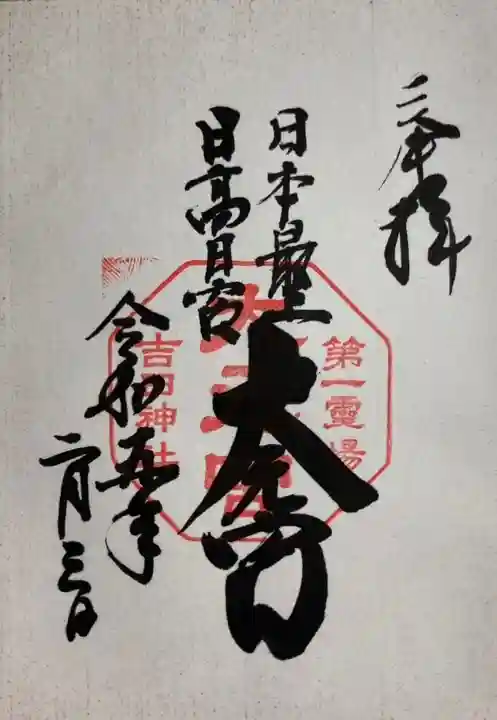 奉拝
日本最上
日高日宮
大元宮
令和五年
二月三日
第一霊場
吉田神社